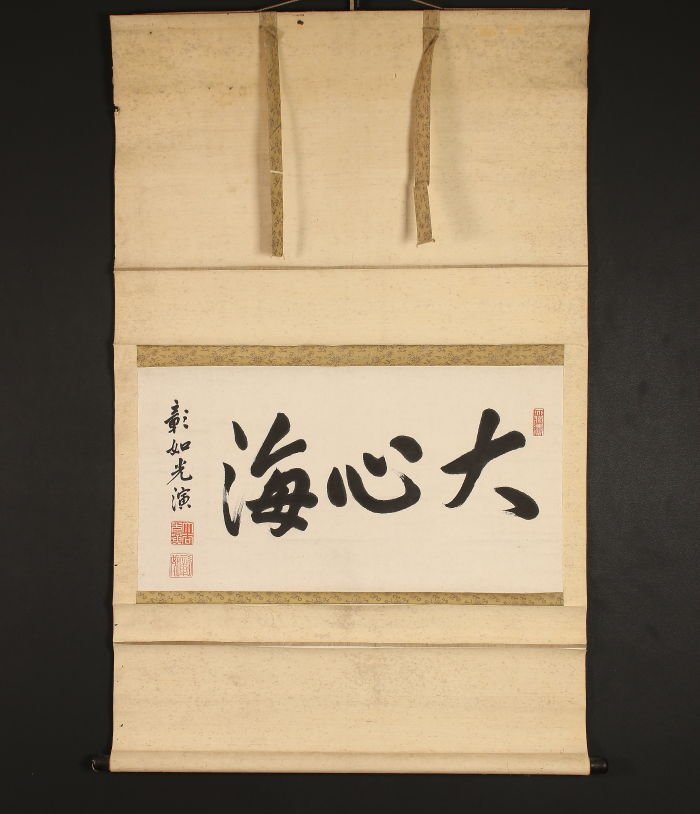 大心海
彰如光演